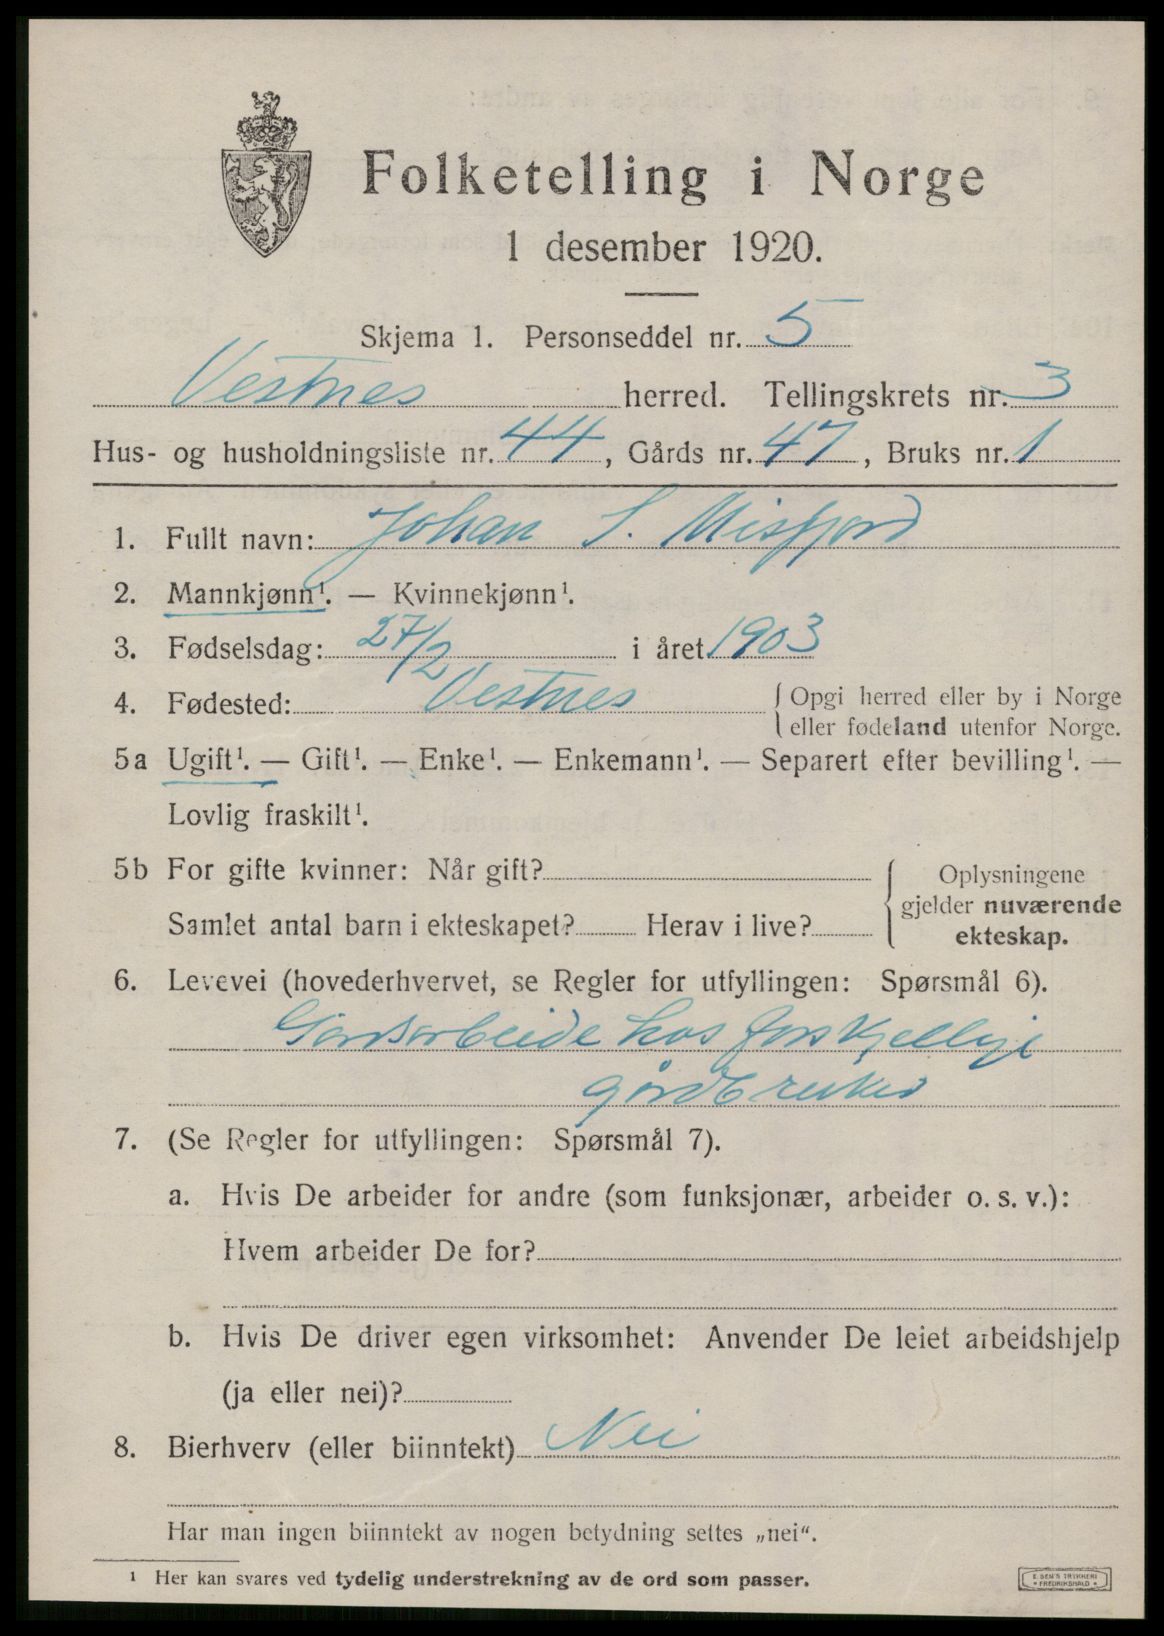 Folketelling i Norge
1 desember 1920.
Skjema 1. Personseddel nr. 5
Vestnes herred. Tellingskrets nr. 3
Hus- og husholdningsliste nr. 44, Gårds nr. 47, Bruks nr. 1
1. Fullt navn: Johan S. Misfjord
2. Mannkjønn¹. — Kvinnekjønn¹.
3. Fødselsdag: 27/2 i året 1903
4. Fødested: Vestnes { Opgi herred eller by i Norge
eller fødeland utenfor Norge.
5a Ugift¹. — Gift¹. — Enke¹. — Enkemann¹. — Separert efter bevilling¹. —
Lovlig fraskilt¹.
5b For gifte kvinner: Når gift?
Samlet antal barn i ekteskapet? Herav i live?
Oplysningene
gjelder nuværende
ekteskap.
6. Levevei (hovederhvervet, se Regler for utfyllingen: Spørsmål 6).
Gardsarbeide hos forskjellige
gårdbruker
7. (Se Regler for utfyllingen: Spørsmål 7).
a. Hvis De arbeider for andre (som funksjonær, arbeider o. s. v.):
Hvem arbeider De for?
b. Hvis De driver egen virksomhet: Anvender De leiet arbeidshjelp
(ja eller nei)?
8. Bierhverv (eller biinntekt) Nei
Har man ingen biinntekt av nogen betydning settes „nei“.
¹ Her kan svares ved tydelig understrekning av de ord som passer.
E. SEM'S TRYKKERI
* FREDRIKSHALD *